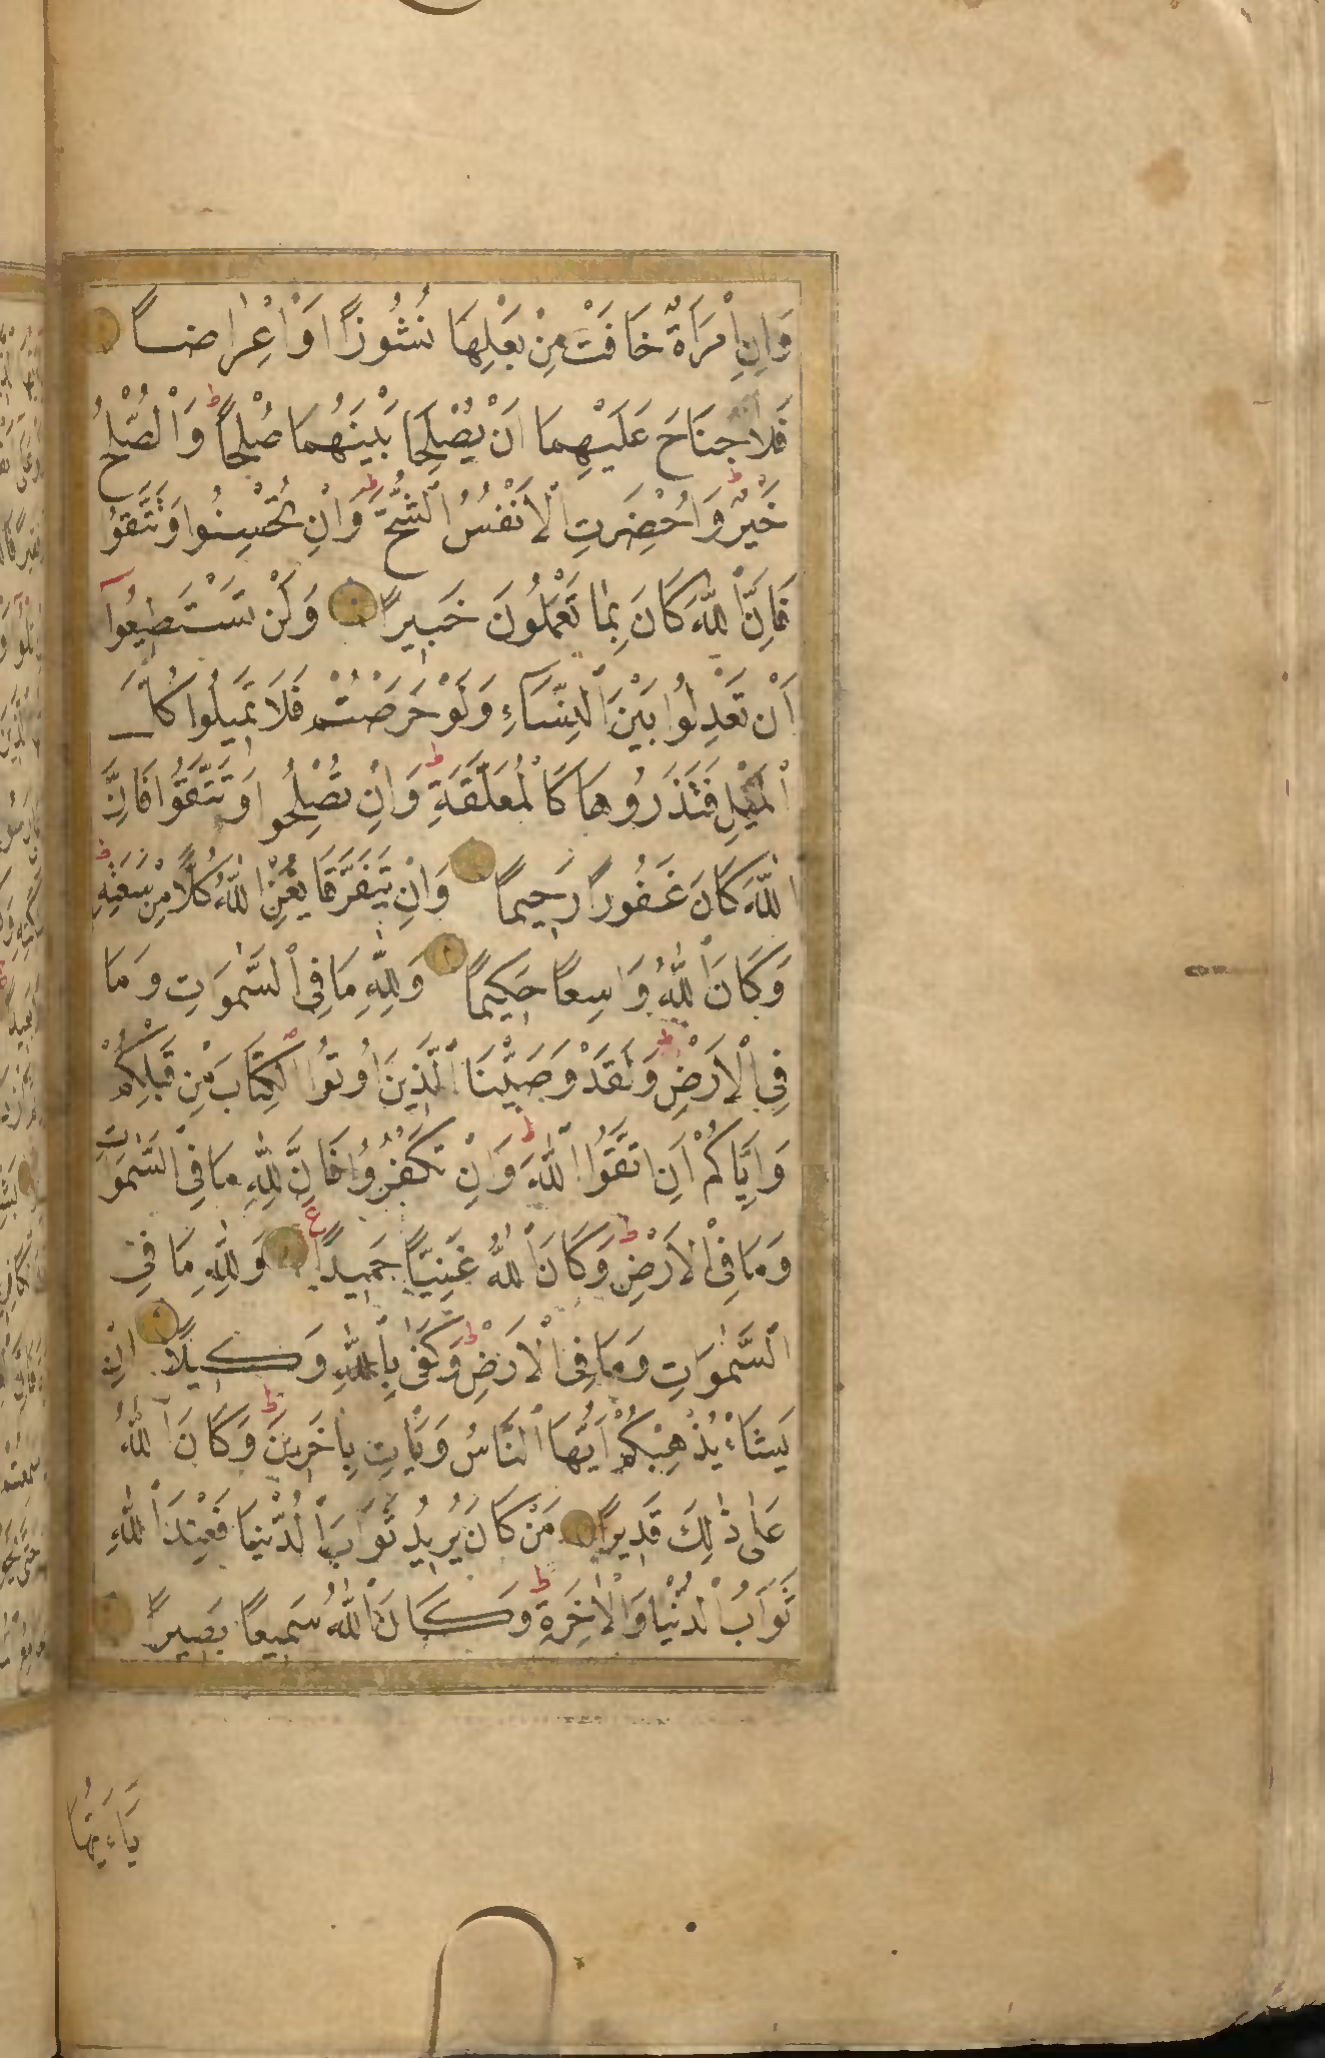 وَاِنِ اِمْرَاَةٌ خَافَتْ مِنْ بَعْلِهَا نُشُوزًا اَوْ اِعْرَاضًا
فَلَا جُنَاحَ عَلَيْهِمَا اَنْ يُصْلِحَا بَيْنَهُمَا صُلْحًا ط وَالصُّلْحُ
خَيْرٌ ط وَاُحْضِرَتِ الْاَنْفُسُ الشُّحَّ ط وَاِنْ تُحْسِنُوا وَتَتَّقُوا
فَاِنَّ اللّٰهَ كَانَ بِمَا تَعْمَلُونَ خَبِيرًا وَلَنْ تَسْتَطِيعُوآ
اَنْ تَعْدِلُوا بَيْنَ النِّسَآءِ وَلَوْ حَرَصْتُمْ فَلَا تَمِيلُوا كُلَّ
الْمَيْلِ فَتَذَرُوهَا كَالْمُعَلَّقَةِ ط وَاِنْ تُصْلِحُوا وَتَتَّقُوا فَاِنَّ
اللّٰهَ كَانَ غَفُورًا رَحِيمًا وَاِنْ يَتَفَرَّقَا يُغْنِ اللّٰهُ كُلًّا مِنْ سَعَتِهِ ط
وَكَانَ اللّٰهُ وَاسِعًا حَكِيمًا وَلِلّٰهِ مَا فِي السَّمٰوَاتِ وَمَا
فِي الْاَرْضِ ط وَلَقَدْ وَصَّيْنَا الَّذِينَ اُوتُوا الْكِتَابَ مِنْ قَبْلِكُمْ
وَاِيَّاكُمْ اَنِ اتَّقُوا اللّٰهَ ط وَاِنْ تَكْفُرُوا فَاِنَّ لِلّٰهِ مَا فِي السَّمٰوَاتِ
وَمَا فِي الْاَرْضِ ط وَكَانَ اللّٰهُ غَنِيًّا حَمِيدًا ع وَلِلّٰهِ مَا فِي
السَّمٰوَاتِ وَمَا فِي الْاَرْضِ ط وَكَفٰى بِاللّٰهِ وَكِيلًا اِنْ
يَشَاْ يُذْهِبْكُمْ اَيُّهَا النَّاسُ وَيَاْتِ بِاٰخَرِينَ ط وَكَانَ اللّٰهُ
عَلٰى ذٰلِكَ قَدِيرًا مَنْ كَانَ يُرِيدُ ثَوَابَ الدُّنْيَا فَعِنْدَ اللّٰهِ
ثَوَابُ الدُّنْيَا وَالْاٰخِرَةِ ط وَكَانَ اللّٰهُ سَمِيعًا بَصِيرًا
يَاءَيُّهَا